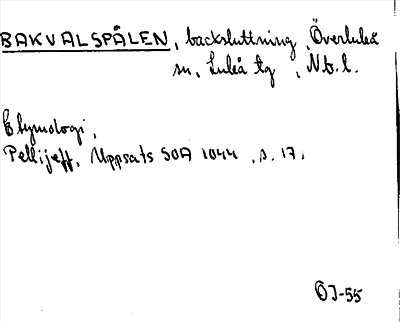 BAKVALSPÅLEN, backsluttning, Överluleå
sn, Luleå tg, Nb. l.
Etymologi,
Pellijeff, Uppsats SOA 1044, s. 17.
ÖJ-55